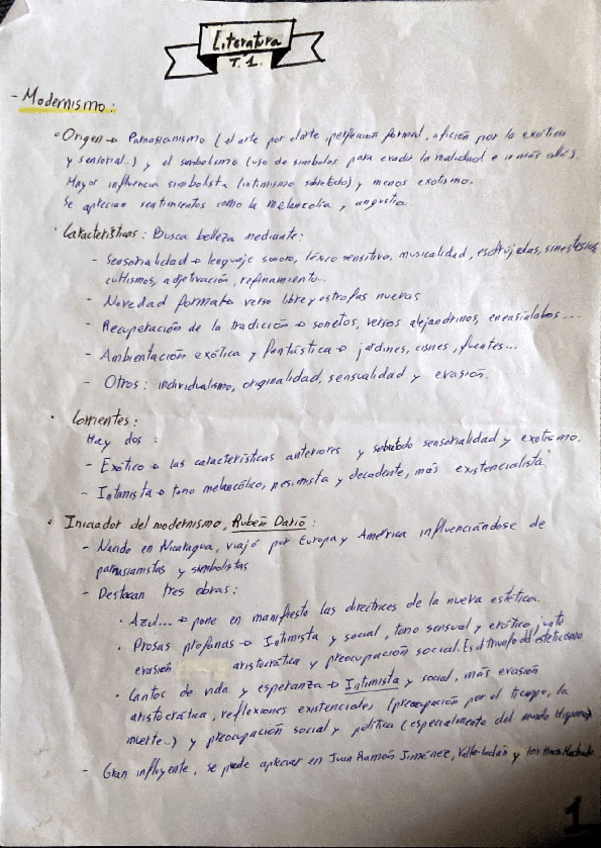 Literatura
T.1.
- Modernismo:
• Origen → Parnasianismo (el arte por el arte, perfección formal, afición por lo exótico
y sensorial.) y el simbolismo (uso de símbolos para evadir la realidad e ir más allá).
Mayor influencia simbolista (intimismo sobretodo) y menos exotismo.
Se aprecian sentimientos como la melancolía y angustia.
• Características: Busca belleza mediante:
- Sensorialidad → lenguaje sonoro, léxico sensitivo, musicalidad, esdrújulas, sinestesias,
cultismos, adjetivación, refinamiento...
- Novedad formal → verso libre y estrofas nuevas
- Recuperación de la tradición → sonetos, versos alejandrinos, eneasílabos...
- Ambientación exótica y fantástica → jardines, cisnes, fuentes...
- Otros: individualismo, originalidad, sensualidad y evasión.
• Corrientes:
Hay dos:
- Exótico → las características anteriores y sobretodo sensorialidad y exotismo.
- Intimista → tono melancólico, pesimista y decadente, más existencialista
• Iniciador del modernismo, Rubén Darío:
- Nacido en Nicaragua, viajó por Europa y América influenciándose de
parnasianistas y simbolistas
- Destacan tres obras:
• Azul... → pone en manifiesto las directrices de la nueva estética.
• Prosas profanas → Intimista y social, tono sensual y erótico, junto
evasión aristocrática y preocupación social. Es el triunfo del esteticismo
• Cantos de vida y esperanza → Intimista y social, más evasión
aristocrática, reflexiones existenciales (preocupación por el tiempo, la
muerte...) y preocupación social y política (especialmente del mundo Hispano)
- Gran influyente, se puede apreciar en Juan Ramón Jiménez, Valle-Inclán y los Hnos Machado.
1